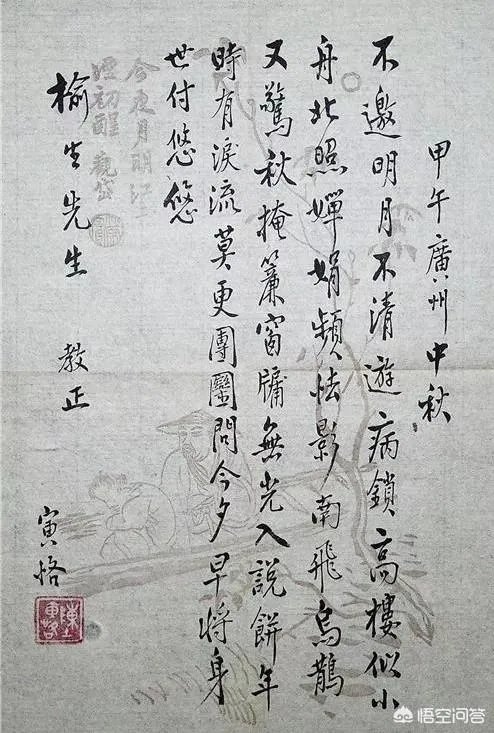 甲午廣州中秋
不邀明月不清遊病鎖高樓似小
舟北照嬋娟頻怯影南飛烏鵲
又驚秋掩簾窗牖無光入說餅年
時有淚流莫更團圞問今夕早將身
世付悠悠
榆生先生 教正
寅恪
今夜月明江上
酒初醒
陳寅恪
悟空问答